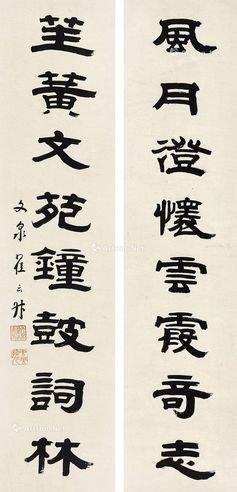 風月澄懷雲霞奇志
笙簧文苑鐘鼓詞林
文泉崔雲升